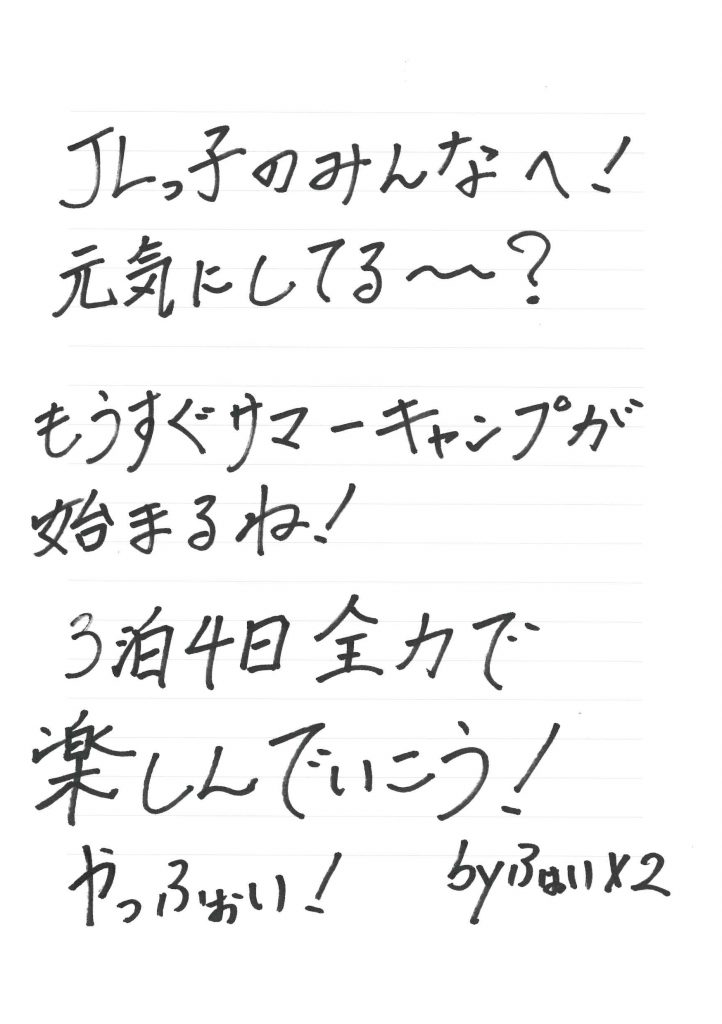 JLっ子のみんなへ!
元気にしてる〜〜?
もうすぐサマーキャンプが
始まるね!
3泊4日全力で
楽しんでいこう!
やっふぉい! byふぁい×2